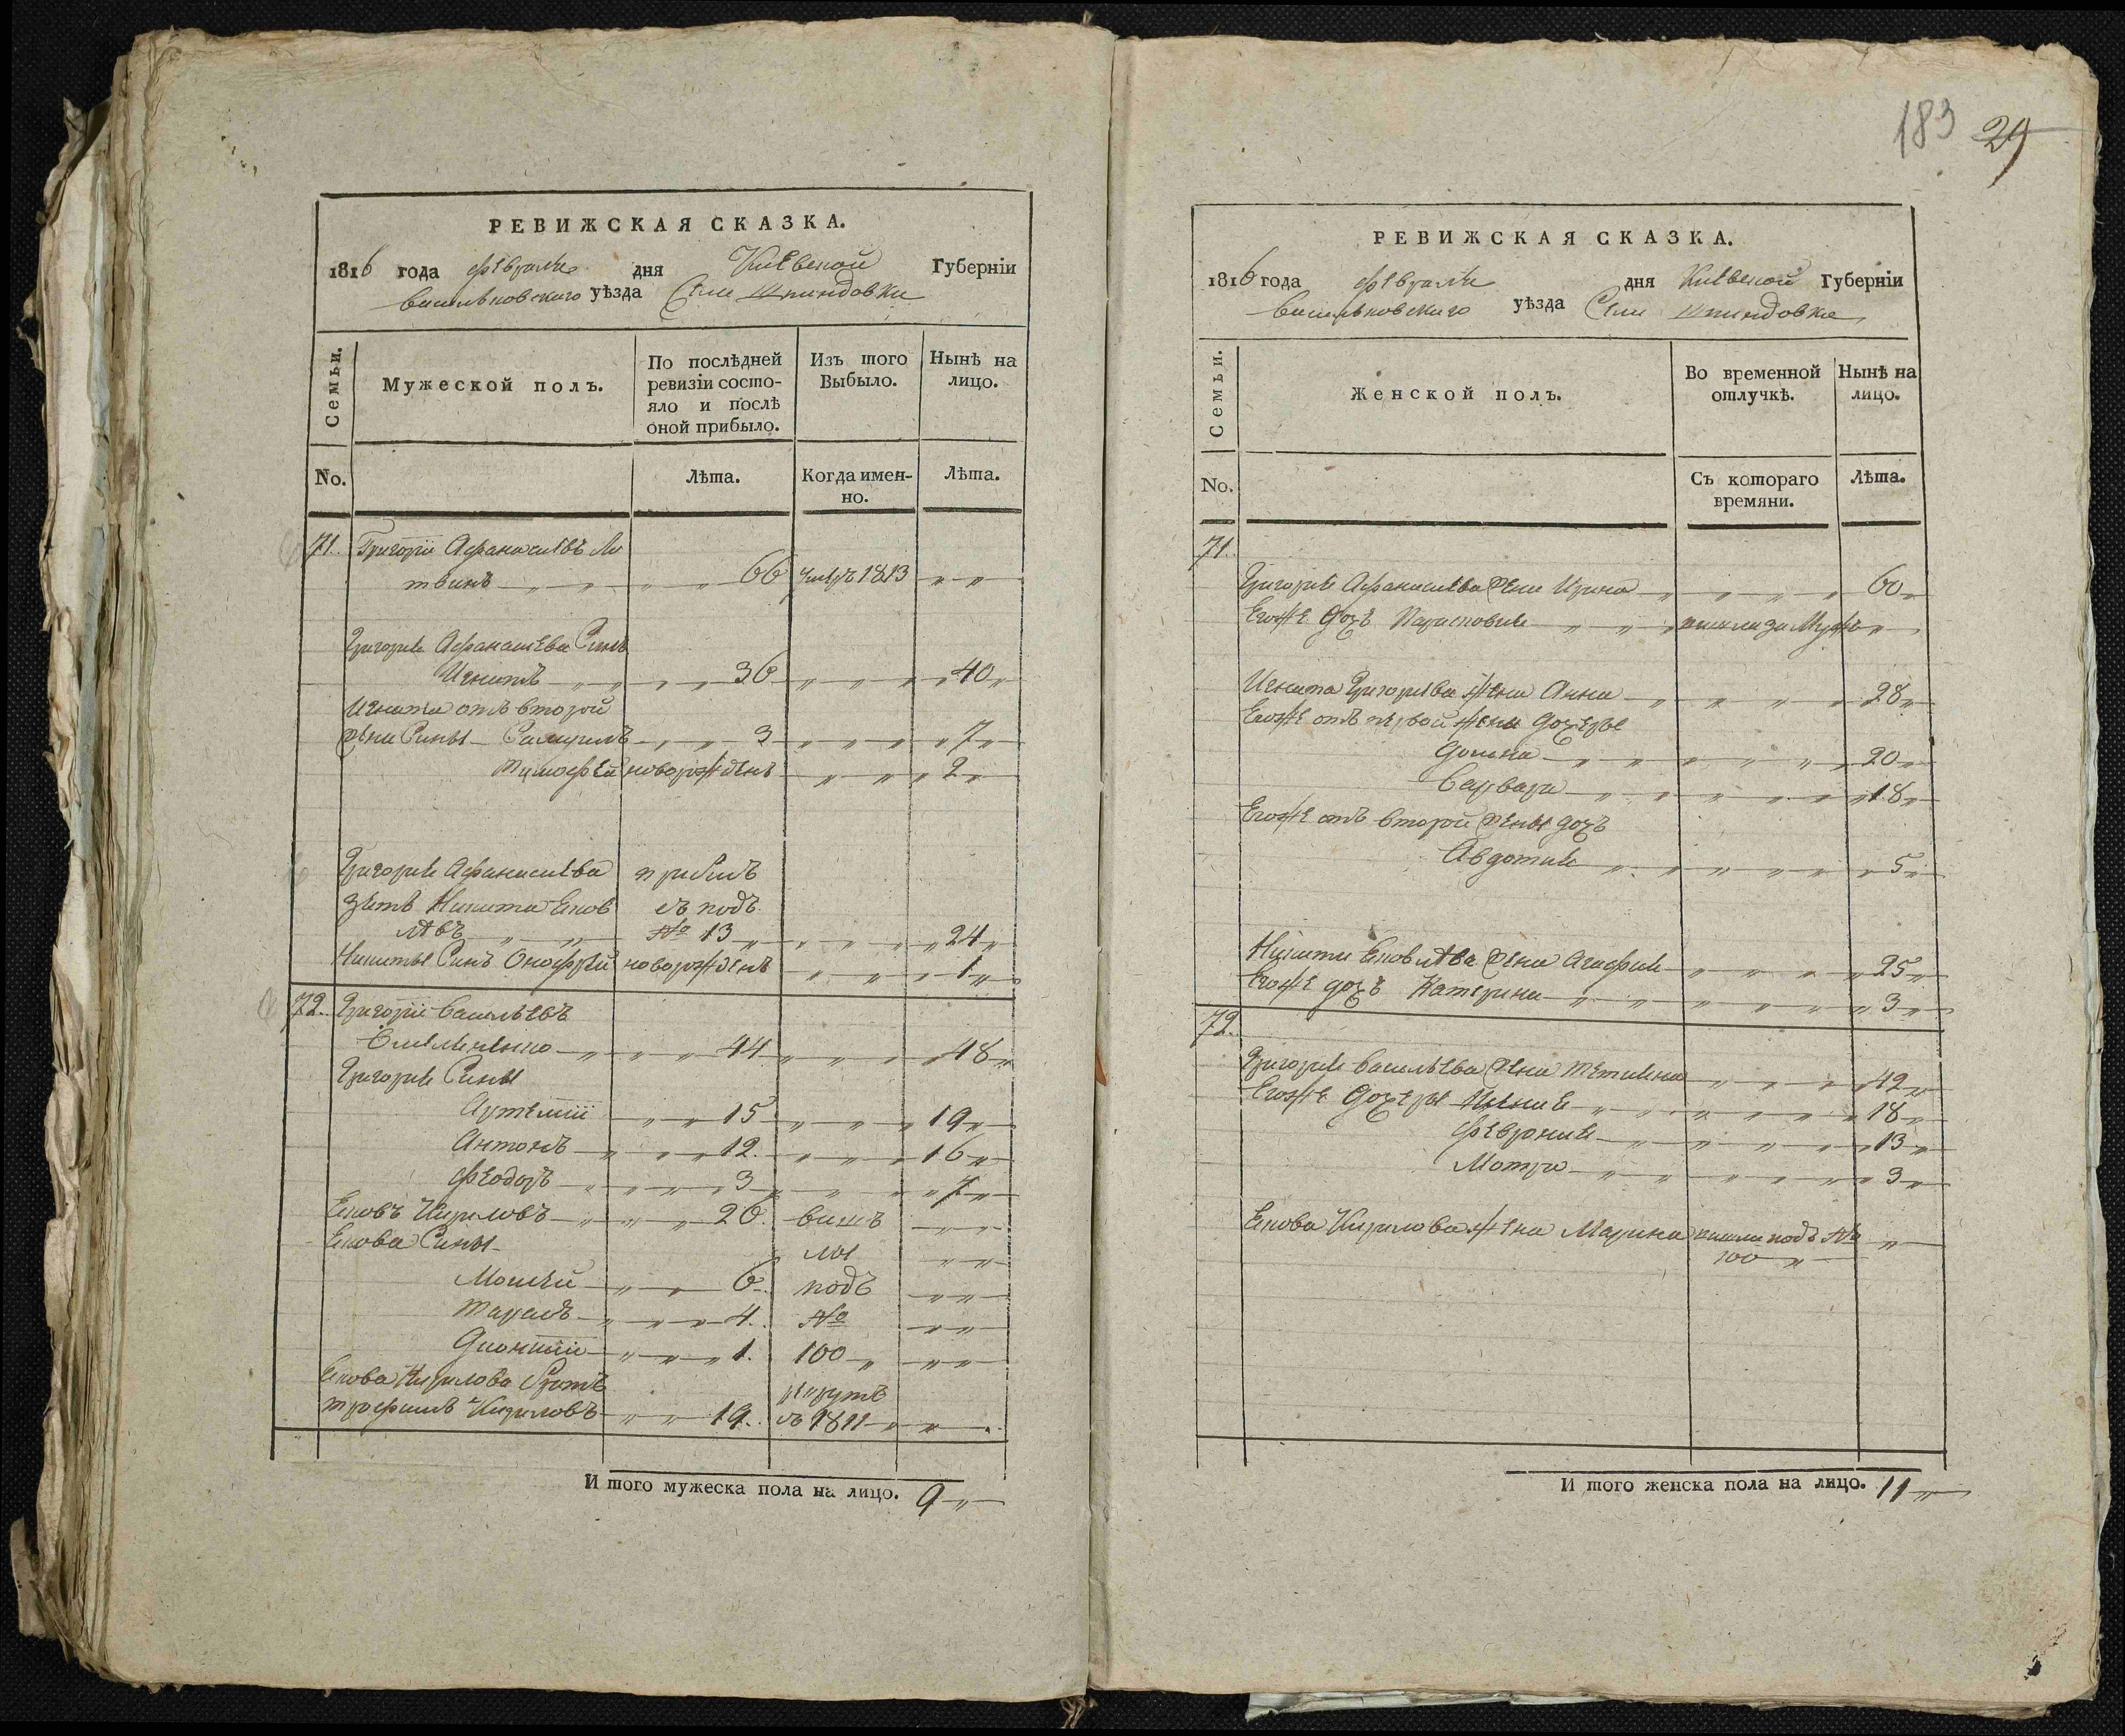 РЕВИЖСКАЯ СКАЗКА.
1816 года февраля дня Киевской Губерніи
Васильковского уѣзда Села Шпиндовки
Семьи.
Мужеской полъ.
По послѣдней ревизіи состояло и послѣ оной прибыло.
Изъ того Выбыло.
Нынѣ на лицо.
No.
Лѣта.
Когда именно.
Лѣта.
71. Григорій Афанасиевъ Ли
твинъ 66 1813
Григория Афанасиева Синъ
Игнатъ 36 40
Игната отъ второй
жени Сины Самуилъ 3 7
Тимофей новорожденъ 2
Григория Афанасиева прибилъ
зять Никита Еков съ подъ
лѣвъ № 13 24
Никиты Синъ Онофрей новорожденъ 1
72. Григорій Василѣевъ
Емельяненко 44 48
Григория Сины
Артемій 15 19
Антонъ 12. 16
Феодоръ 3 7
Екова Кириловъ 26. вишъ
Екова Сины лы
Мосей 6. подъ
Тарасъ 4. №
Дионисій 1. 100
Екова Кирилова братъ рекрутъ
Трофимъ Кириловъ 19. въ 1811
И того мужеска пола на лицо. 9
183 29
РЕВИЖСКАЯ СКАЗКА.
1816 года февраля дня Киевской Губерніи
Васильковского уѣзда Села Шпиндовки
Семьи.
Женской полъ.
Во временной отлучкѣ.
Нынѣ на лицо.
No.
Съ котораго времяни.
Лѣта.
71.
Григория Афанасиева жена Ирина 60
Егоже дочъ Парасковия вишла за Мужъ
Игната Григориева жена Анна 28
Егоже отъ первой жены дочери
Домна 20
Варвара 18
Егоже отъ второй жены дочъ
Авдотия 5
НикитыЕковлѣва жена Агафия 25
Егоже дочъ Катерина 3
72.
Григория Василѣева жена Тетияна 42
Егоже дочери Ксения 18
Феврония 13
Мотря 3
Екова Кирилова жена Марина вишли подъ №
100
И того женска пола на лицо. 11